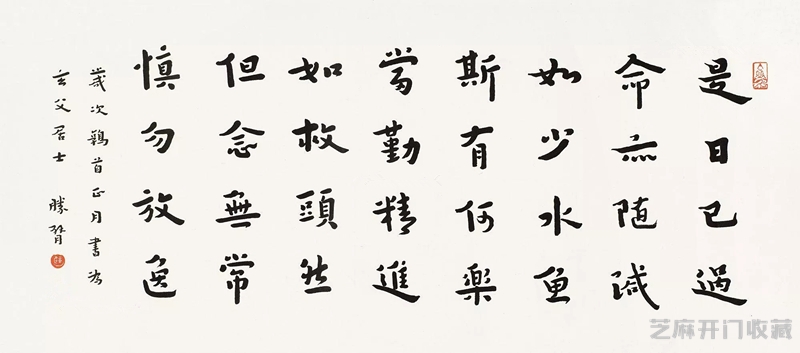 是日已過
命亦随減
如少水魚
斯有何樂
當勤精進
如救頭然
但念無常
慎勿放逸
歲次鶉首正月書為
玄父居士 勝臂
芝麻开门收藏